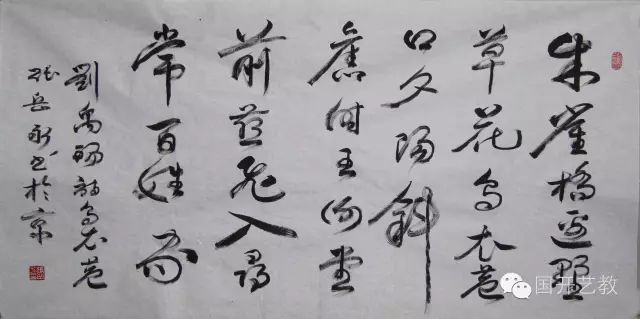 朱雀橋邊野
草花烏衣巷
口夕陽斜
舊時王謝堂
前燕飛入尋
常百姓家
劉禹錫詩烏衣巷
張岳永书於京
国开艺教